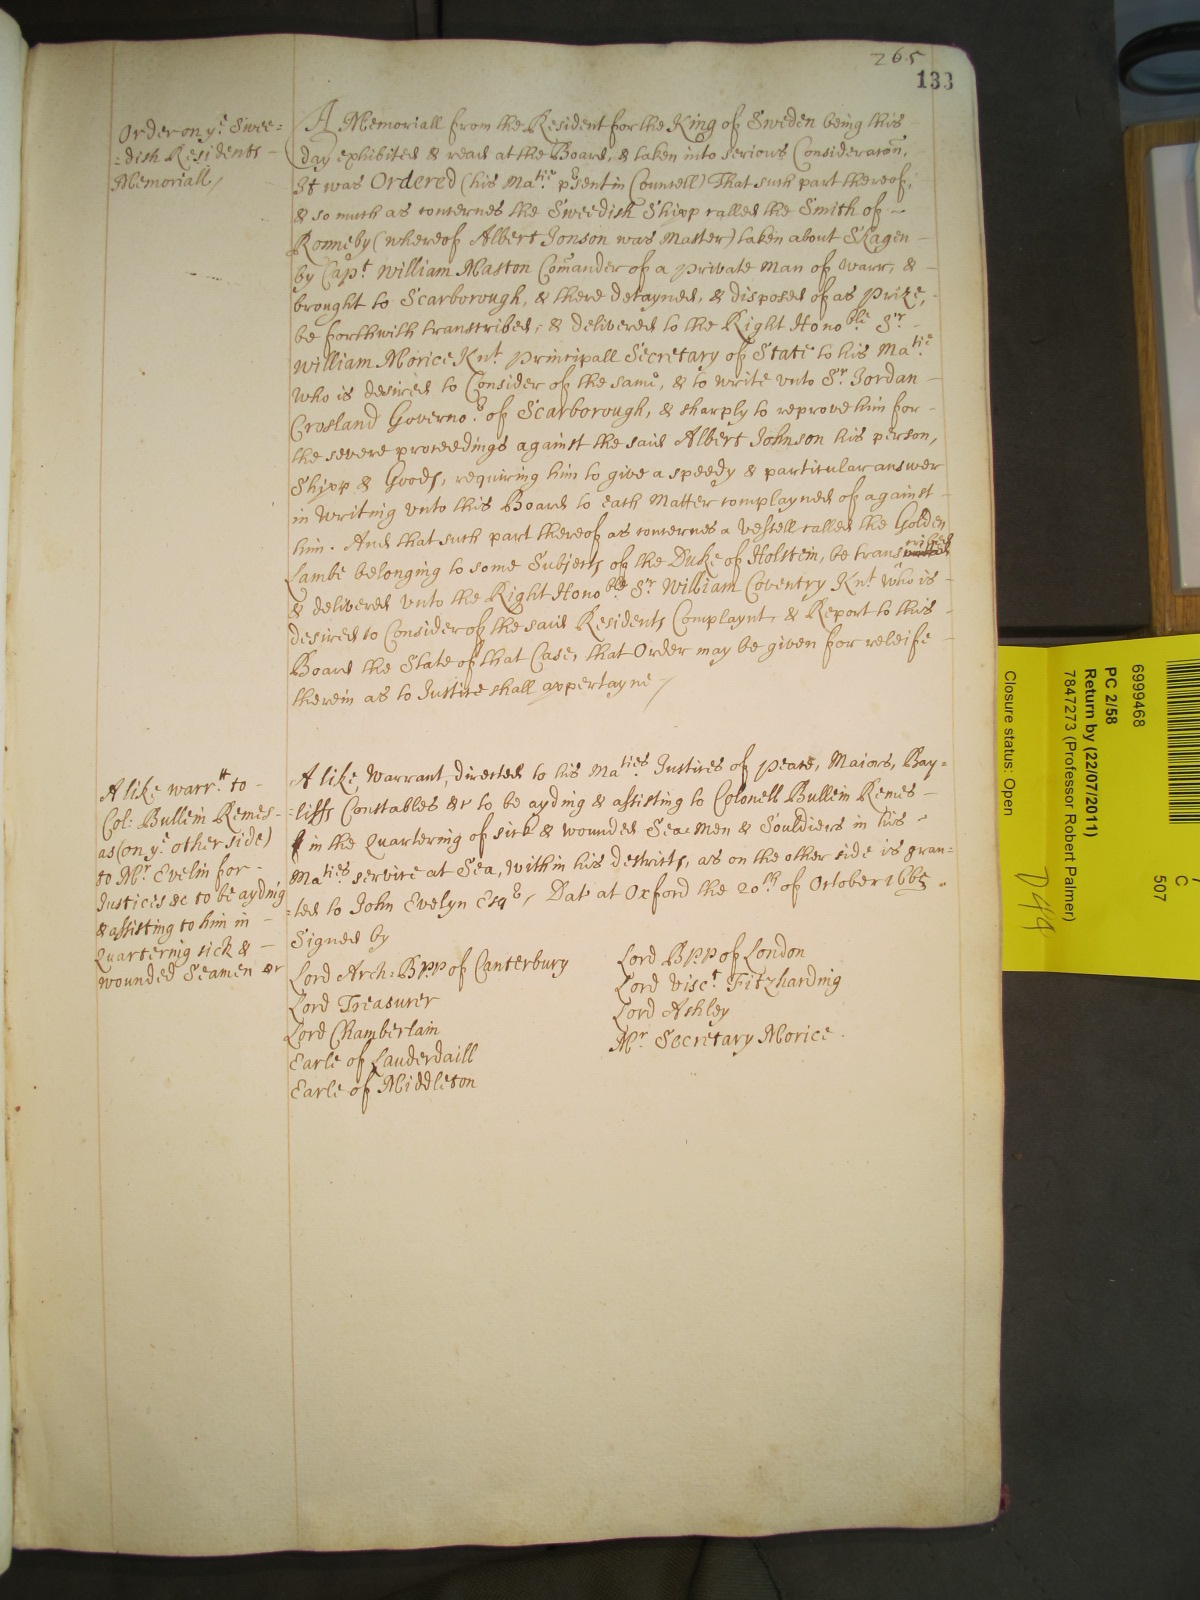 265
133
Order on yᵉ Swee=
=dish Residents
Memoriall/
A Memoriall from the Resident for the King of Sweden being this
day exhibited & read at the Board, & taken into serious Consideraton,
It was Ordered (his Maᵗⁱᵉ pʳsent in Councell) That such part thereof,
& so much as concernes the Sweedish Shipp called the Smith of
Ronneby (whereof Albert Jonson was Master) taken about Skagen
by Capᵗ William Maston Comander of a private Man of Warr, &
brought to Scarborough, & there detayned, & disposed of as Prize,
be forthwith transcribed, & delivered to the Right Honoᵇˡᵉ Sʳ
William Morice Knᵗ Principall Secretary of State to his Maᵗⁱᵉ
Who is desired to Consider of the same, & to write unto Sʳ Jordan
Crosland Governoʳ of Scarborough, & sharply to reprove him for
the severe proceedings against the said Albert Johnson his person,
Shipp & Goods, requiring him to give a speedy & particular answer
in Writing unto this Board to each Matter complayned of against
him. And that such part thereof as concernes a Vessell called the Golden
Lambe belonging to some Subjects of the Duke of Holstein, be transcribed
& delivered unto the Right Honoᵇˡᵉ Sʳ William Coventry Knᵗ who is
desired to Consider of the said Residents Complaynt, & Report to this
Board the State of that Case, that Order may be given for releife
therein as to Justice shall appertayne/
A like warrᵗ to
Col: Bullein Remes
as (on yᵉ other side)
to Mʳ Evelin for
Justices &c to be ayding
& assisting to him in
Quartering sick &
wounded Seamen &c
A like Warrant, directed to his Maᵗⁱᵉˢ Justices of peace, Maiors, Bay=
=liffs Constables &c to be ayding & assisting to Colonell Bullein Remes
in the Quartering of sick & wounded Sea-men & Souldiers in his
Maᵗⁱᵉˢ service at Sea, within his destricts, as on the other side is gran=
=ted to John Evelyn Esqʳ, Dat' at Oxford the 20ᵗʰ of October 1665
Signed by
Lord Arch-Bpp of Canterbury
Lord Treasurer
Lord Chamberlain
Earle of Lauderdaill
Earle of Middleton
Lord Bpp of London
Lord Viscᵗ Fitzharding
Lord Ashley
Mʳ Secretary Morice
6999468
PC 2/58
Return by (22/07/2011)
7847273 (Professor Robert Palmer)
Closure status: Open
C
507